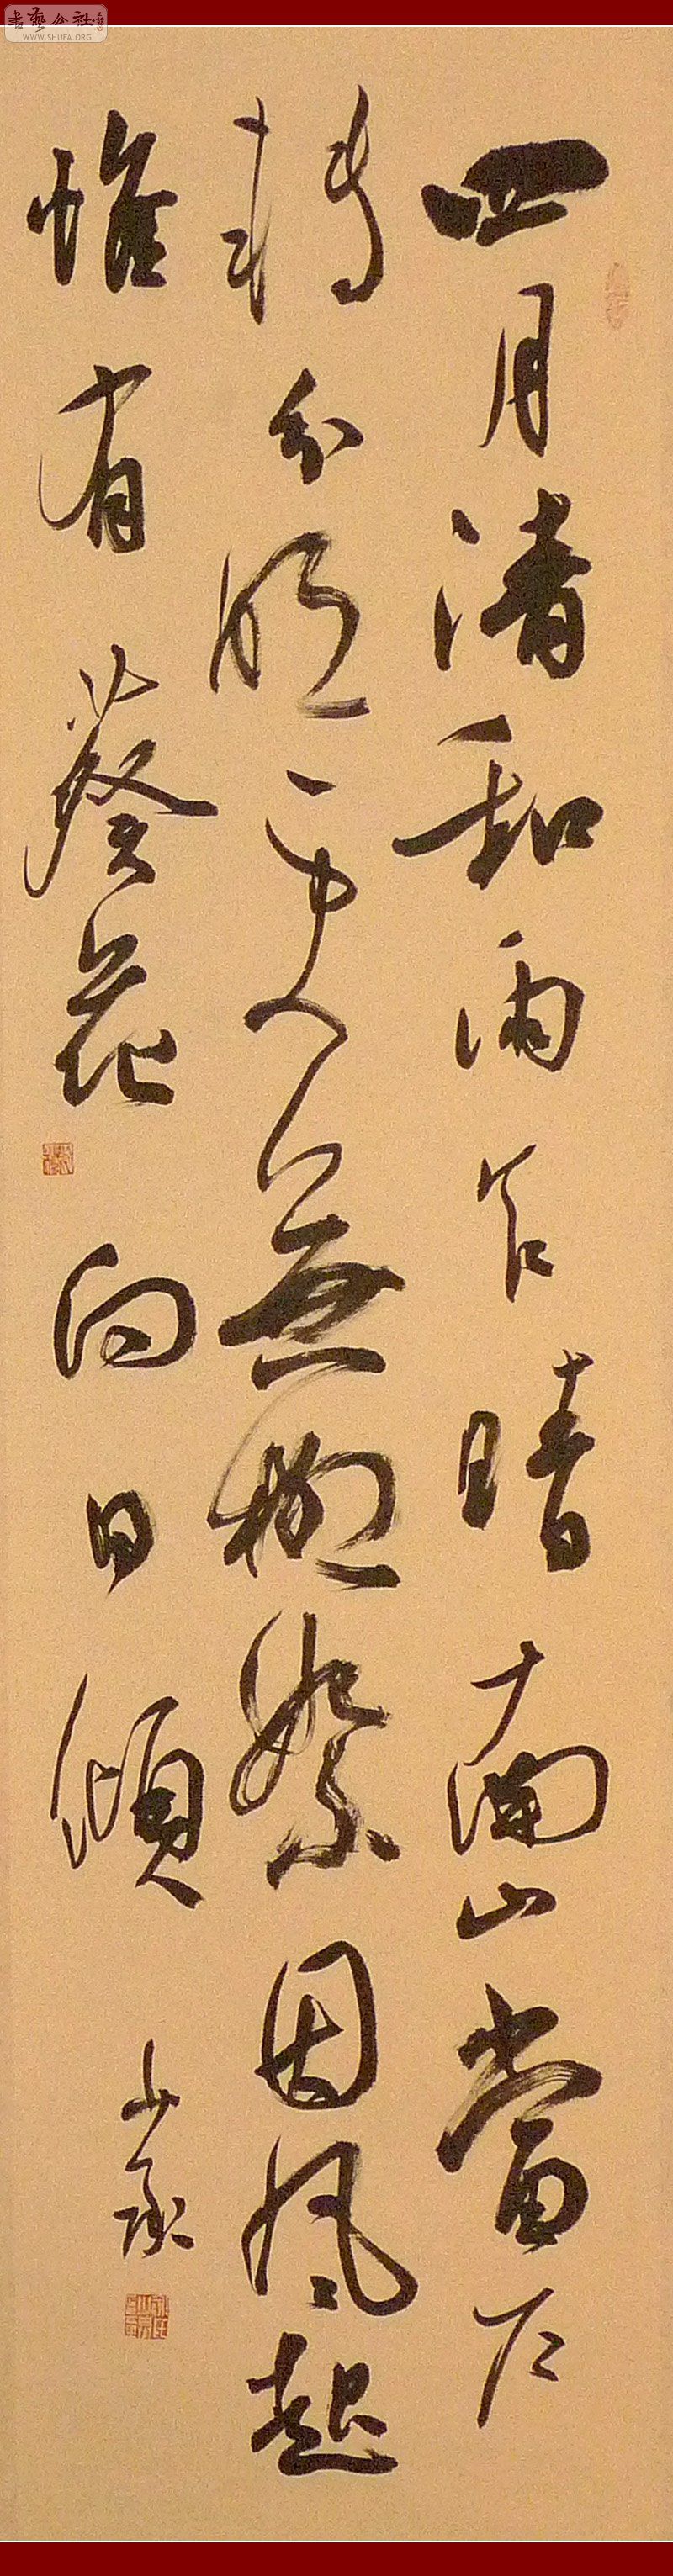 書藝公社
WWW.SHUFA.ORG
四月清和雨乍晴南山當戶
轉分明更無柳絮因風起
惟有葵花向日傾